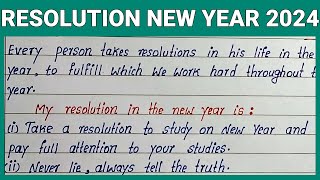 RESOLUTION NEW YEAR 2024
Every person takes resolutions in his life in the
year, to fulfill which we work hard throughout
year.
My resolution in the new year is :
(i) Take a resolution to study on New Year and
pay full attention to your studies.
ii) Never lie, always tell the truth.